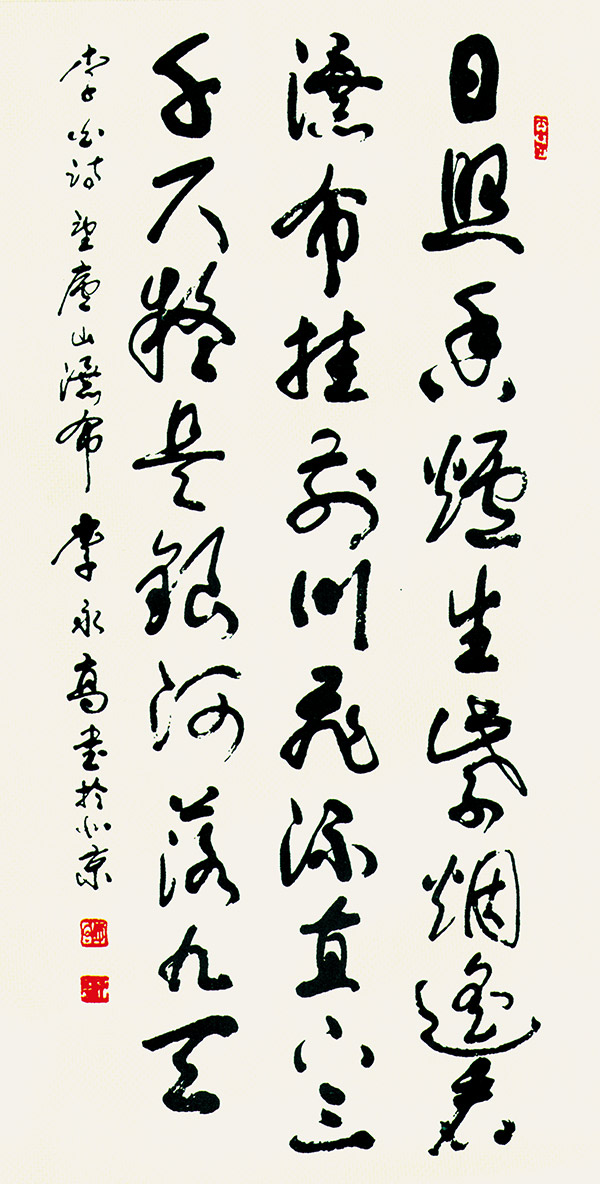 日照香爐生紫烟遙看
瀑布挂前川飛流直下三
千尺疑是銀河落九天
李白诗望廬山瀑布李永高书於北京